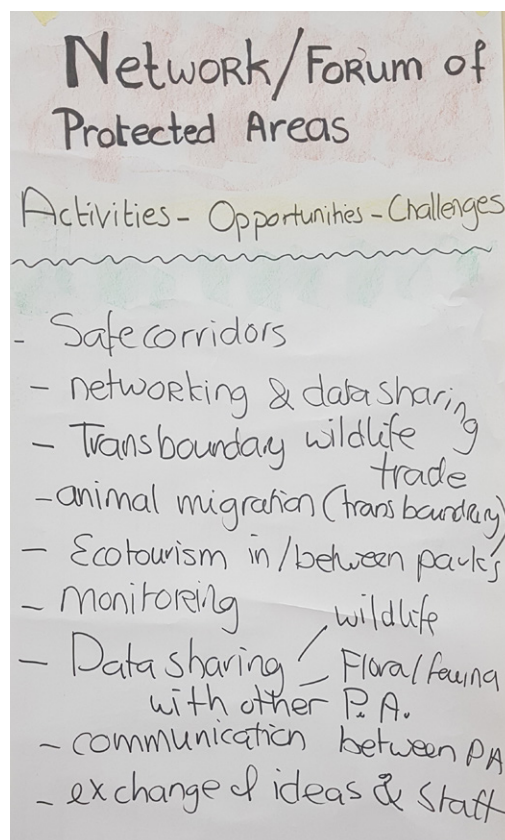 Network/Forum of
Protected Areas
Activities - Opportunities - Challenges
- Safe corridors
- networking & data sharing
- Transboundary wildlife
trade
- animal migration (transboundary)
- Ecotourism in/between parks
- monitoring
wildlife
- Data sharing Flora/fauna
with other P.A.
- communication between PA
- exchange of ideas & staff